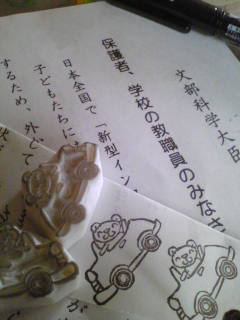 文部科学大臣
保護者、学校の教職員のみなさ
日本全国で「新型イン
子どもたちに
するため、外で